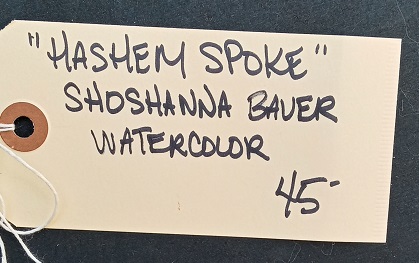 "HASHEM SPOKE"
SHOSHANNA BAUER
WATERCOLOR
45-